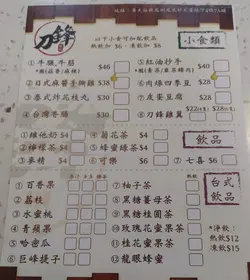 刀鋒
以下小食可加配飲品
熱飲加 $6 · 凍飲加 $6
小食類
①牛𦟌,牛筋
(麻辣)
$46
②日式麻醬手撕雞
$38
③泰式炸花枝丸
$30
④台灣香腸
$30
⑤紅油抄手
⑥肉燥豆腐
$28
⑦皮蛋豆腐
$28
⑧刀鋒雞翼
飲品
①維他奶
②檸檬茶
③麥精
④菊花茶
⑤蜂蜜綠茶
⑥可樂
⑦七喜
$6
台式飲品
①百香果
②荔枝
③水蜜桃
④青蘋果
⑤哈密瓜
⑥巨峰提子
⑦柚子茶
⑧黑糖薑母茶
⑨黑糖桂圓茶
⑩玫瑰花蜜果茶
⑪桂花蜜果茶
⑫龍眼蜂蜜
#淨飲:
熱飲$12
凍飲$15